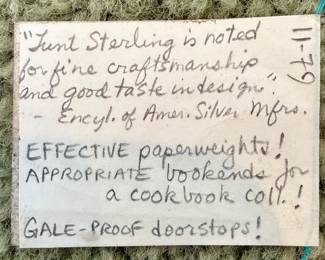 "Tunt Sterling is noted
for fine craftsmanship
and good taste in design".
- Encyl. of Amer. Silver Mfrs.
11-79
EFFECTIVE paperweights!
APPROPRIATE bookends for
a cookbook coll.!
GALE-PROOF doorstops!